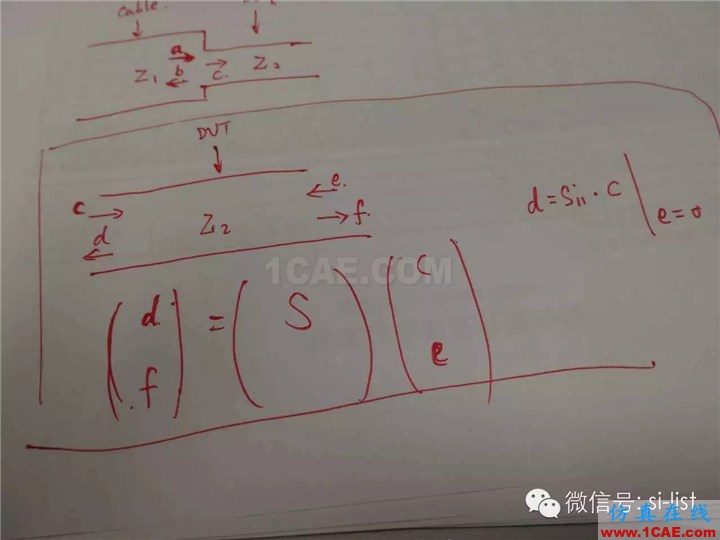 cable.
a
Z1 b c. Z2
DUT
c e.
d Z2 f.
d = S11 · C | e = 0
( d f ) = ( S ) ( C e )
1CAE.COM
微信号: si-list
仿真在线
www.1CAE.com